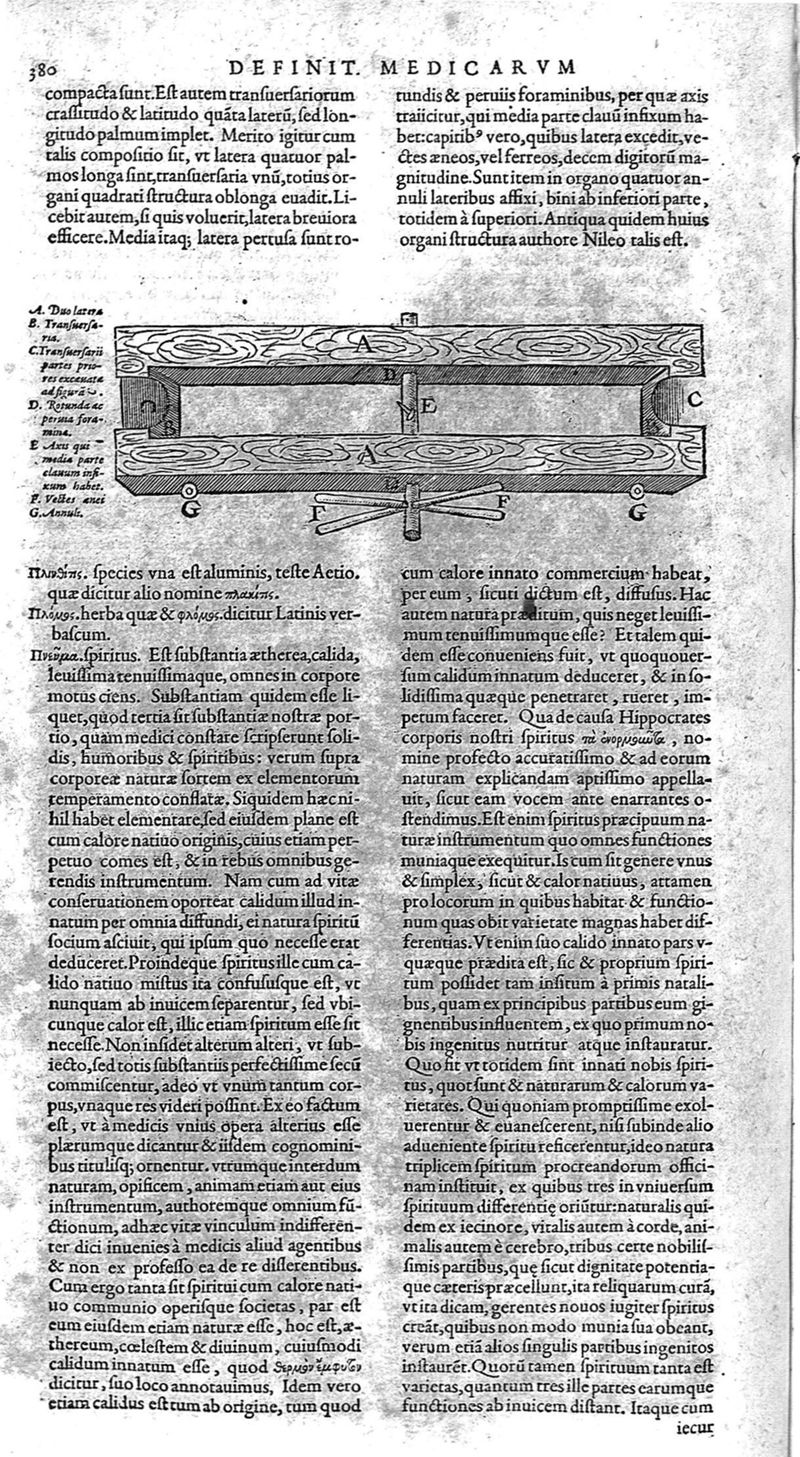 380
DEFINIT. MEDICARVM
compacta sunt. Est autem transuersariorum
crassitudo & latitudo quāta laterū, sed lon-
gitudo palmum implet. Merito igitur cum
talis compositio sit, vt latera quatuor pal-
mos longa sint, transuersaria vnū, totius or-
gani quadrati structura oblonga euadit. Li-
cebit autem, si quis voluerit, latera breuiora
efficere. Media itaq; latera pertusa sunt ro-
tundis & peruiis foraminibus, per quæ axis
traiicitur, qui media parte clauū infixum ha-
bet: capitibꝰ vero, quibus latera excedit, ve-
ctes æneos, vel ferreos, decem digitorū ma-
gnitudine. Sunt item in organo quatuor an-
nuli lateribus affixi, bini ab inferiori parte,
totidem à superiori. Antiqua quidem huius
organi structura authore Nileo talis est.
A. Duo latera
B. Transuersa-
ria.
C. Transuersarii
partes prio-
res excauata
ad figurā .
D. Rotunda ac
peruia fora-
mina.
E Axis qui
media parte
clauum infi-
xum habet.
F. Vectes ænei
G. Annuli.
A
D
C
E
C
B
B
A
D
G
F
F
G
Πλινθῖτις. species vna est aluminis, teste Aetio.
quæ dicitur alio nomine πλακῖτις.
Πλόμος. herba quæ & φλόμος. dicitur Latinis ver-
bascum.
Πνεῦμα. spiritus. Est substantia ætherea, calida,
leuissima tenuissimaque, omnes in corpore
motus ciens. Substantiam quidem esse li-
quet, quod tertia sit substantiæ nostræ por-
tio, quam medici constare scripserunt soli-
dis, humoribus & spiritibus: verum supra
corporeæ naturæ sortem ex elementorum
temperamento conflatæ. Siquidem hæc ni-
hil habet elementare, sed eiusdem plane est
cum calore natiuo originis, cuius etiam per-
petuo comes est, & in rebus omnibus ge-
rendis instrumentum. Nam cum ad vitæ
conseruationem oporteat calidum illud in-
natum per omnia diffundi, ei natura spiritū
socium asciuit, qui ipsum quo necesse erat
deduceret. Proindeque spiritus ille cum ca-
lido natiuo mistus ita confususque est, vt
nunquam ab inuicem separentur, sed vbi-
cunque calor est, illic etiam spiritum esse sit
necesse. Non insidet alterum alteri, vt sub-
iecto, sed totis substantiis perfectissime secū
commiscentur, adeo vt vnum tantum cor-
pus, vnaque res videri possint. Ex eo factum
est, vt à medicis vnius opera alterius esse
plærumque dicantur & iisdem cognomini-
bus titulisq; ornentur. vtrumque interdum
naturam, opificem, animam etiam aut eius
instrumentum, authoremque omnium fū-
ctionum, adhæc vitæ vinculum indifferen-
ter dici inuenies à medicis aliud agentibus
& non ex professo ea de re disserentibus.
Cum ergo tanta sit spiritui cum calore nati-
uo communio operisque societas, par est
eum eiusdem etiam naturæ esse, hoc est, æ-
thereum, cœlestem & diuinum, cuiusmodi
calidum innatum esse, quod θερμὸν ἔμφυτον
dicitur, suo loco annotauimus, Idem vero
etiam calidus est tum ab origine, tum quod
cum calore innato commercium habeat,
per eum, sicuti dictum est, diffusus. Hac
autem natura præditum, quis neget leuissi-
mum tenuissimumque esse? Et talem qui-
dem esse conueniens fuit, vt quoquouer-
sum calidum innatum deduceret, & in so-
lidissima quæque penetraret, rueret, im-
petum faceret. Qua de causa Hippocrates
corporis nostri spiritus τὰ ἐνορμῶντα, no-
mine profecto accuratissimo & ad eorum
naturam explicandam aptissimo appella-
uit, sicut eam vocem ante enarrantes o-
stendimus. Est enim spiritus præcipuum na-
turæ instrumentum quo omnes functiones
muniaque exequitur. Is cum sit genere vnus
& simplex, sicut & calor natiuus, attamen
pro locorum in quibus habitat & functio-
num quas obit varietate magnas habet dif-
ferentias. Vt enim suo calido innato pars v-
quæque prædita est, sic & proprium spiri-
tum possidet tam insitum à primis natali-
bus, quam ex principibus partibus eum gi-
gnentibus influentem, ex quo primum no-
bis ingenitus nutritur atque instauratur.
Quo fit vt totidem sint innati nobis spiri-
tus, quot sunt & naturarum & calorum va-
rietates. Qui quoniam promptissime exol-
uerentur & euanescerent, nisi subinde alio
adueniente spiritu reficerentur, ideo natura
triplicem spiritum procreandorum offici-
nam instituit, ex quibus tres in vniuersum
spirituum differentię oriūtur: naturalis qui-
dem ex iecinore, vitalis autem à corde, ani-
malis autem è cerebro, tribus certe nobilis-
simis partibus, quę sicut dignitate potentia-
que cæteris præcellunt, ita reliquarum curā,
vt ita dicam, gerentes nouos iugiter spiritus
creāt, quibus non modo munia sua obeant,
verum etiā alios singulis partibus ingenitos
instaurēt. Quorū tamen spirituum tanta est
varietas, quantum tres ille partes earumque
functiones ab inuicem distant. Itaque cum
iecur